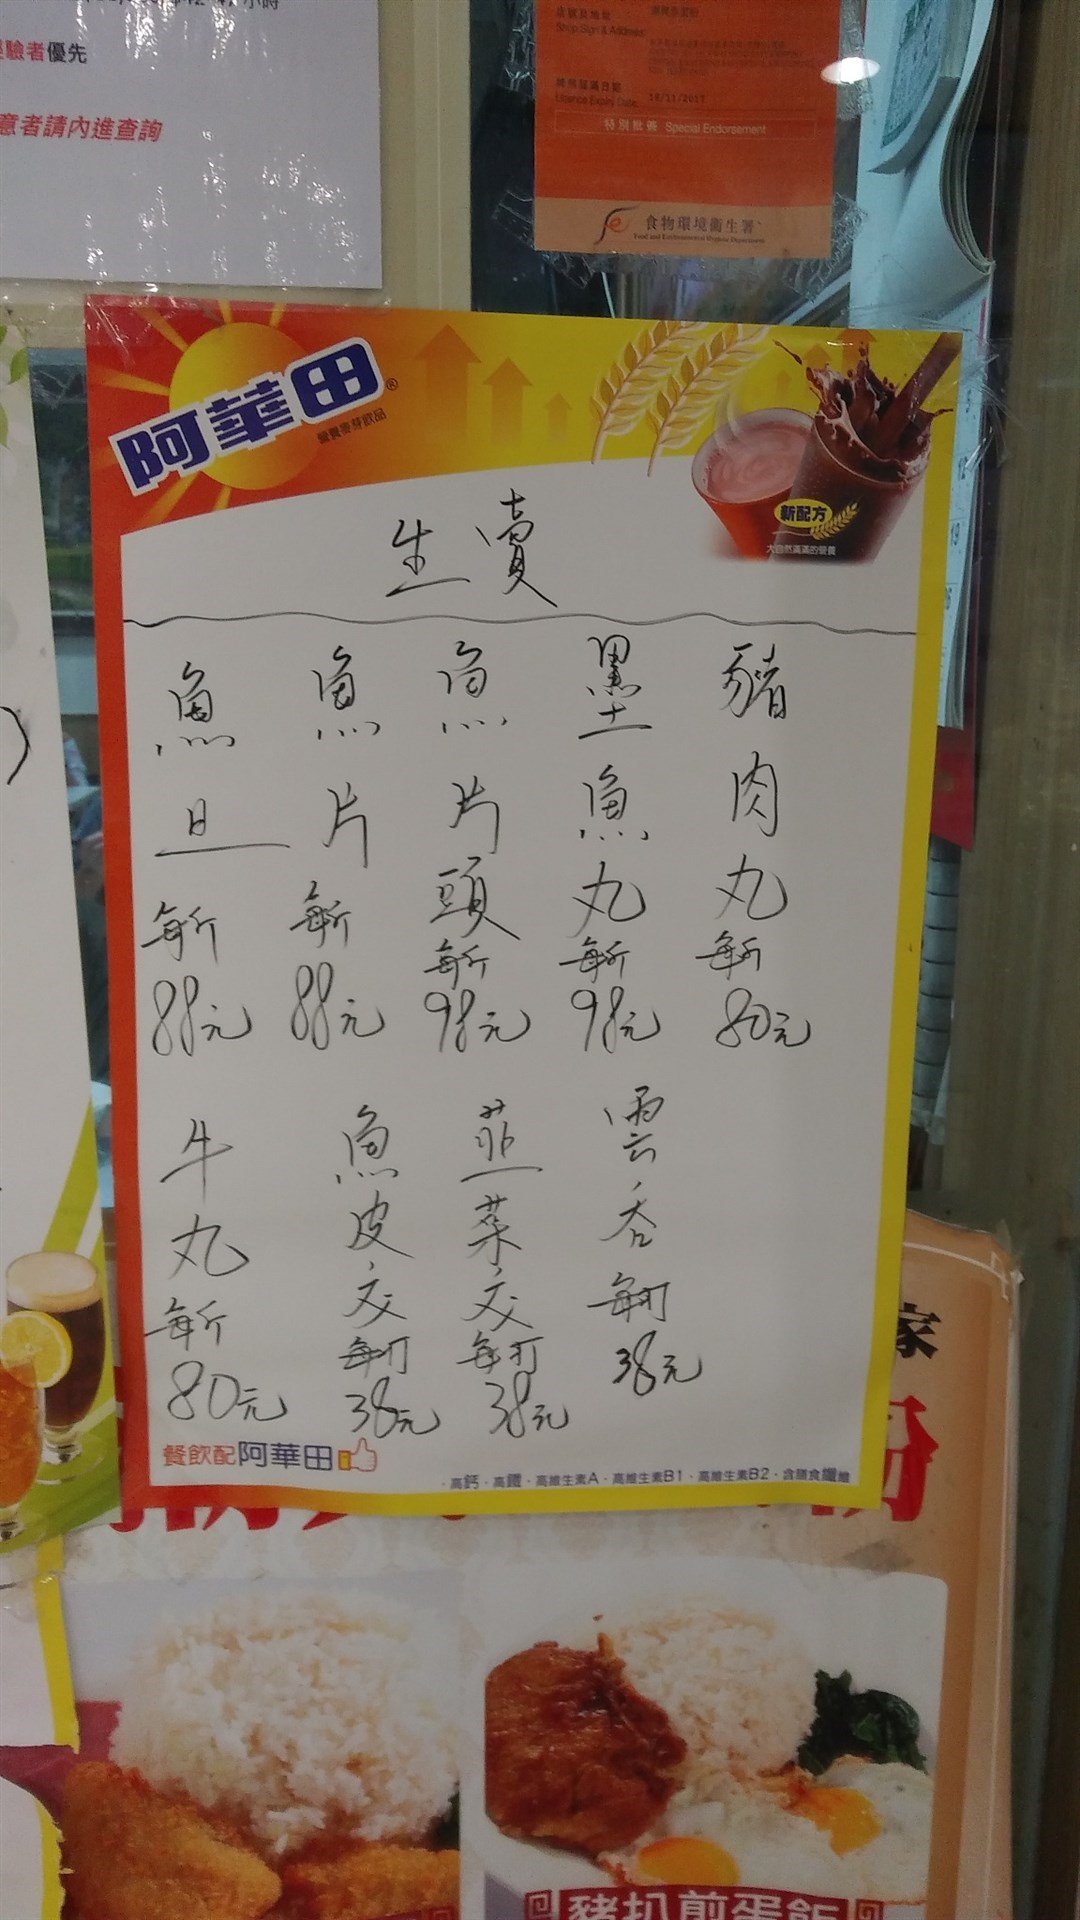 小時
驗者優先
意者請內進查詢
Shop Sign & Address
牌照屆滿日期
Licence Expiry Date
18/11/2017
特別批簽 Special Endorsement
食物環境衞生署
Food and Environmental Hygiene Department
阿華田®
營養麥芽飲品
新配方
大自然滿滿的營養
生賣
魚旦每斤88元
魚片每斤88元
魚片頭每斤98元
墨魚丸每斤98元
豬肉丸每斤80元
牛丸每斤80元
魚皮交每打38元
韮菜交每打38元
雲吞每打38元
餐飲配阿華田
·高鈣·高鐵·高維生素A·高維生素B1·高維生素B2·含膳食纖維
家
豬扒煎蛋飯